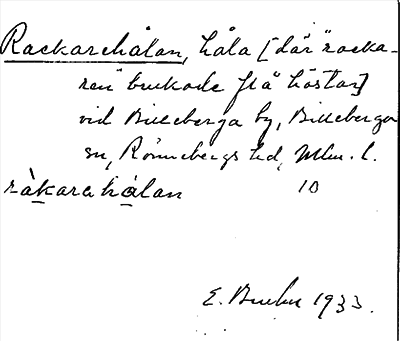 Rackarehålan, håla [där "racka-
ren" brukade flå hästar]
vid Billeberga by, Billeberga
sn, Rönnebergs hd, Mlm. l.
råkarahålan 10
E. Bruhn 1933.